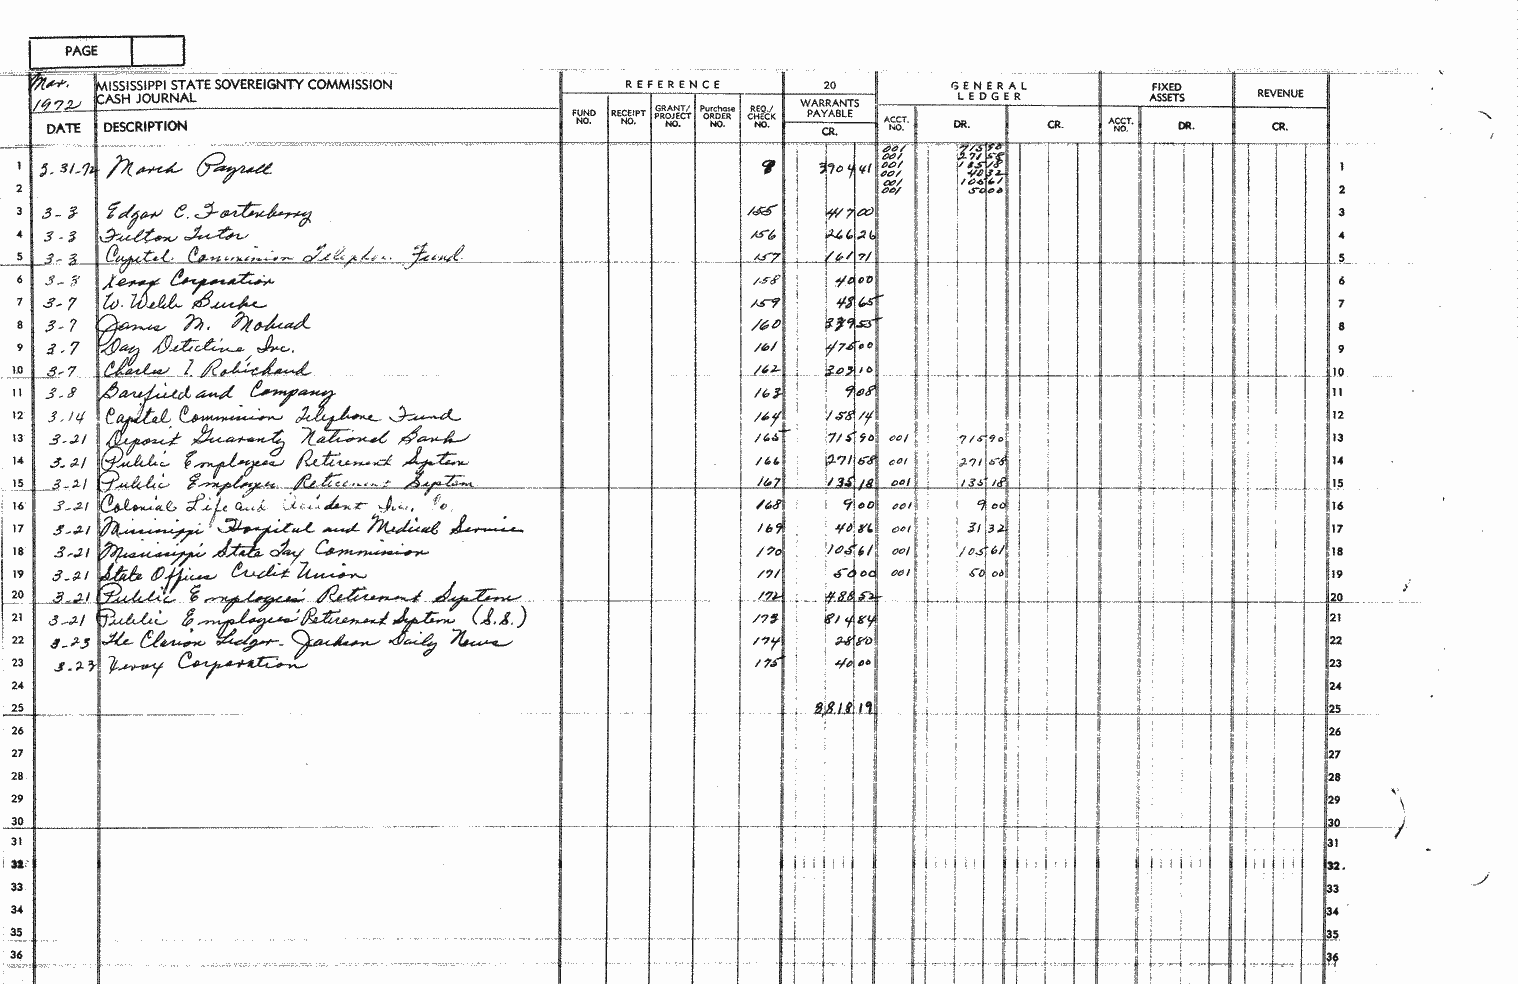 PAGE
Mar. MISSISSIPPI STATE SOVEREIGNTY COMMISSION REFERENCE 20 GENERAL LEDGER FIXED ASSETS REVENUE
1972 CASH JOURNAL
DATE DESCRIPTION FUND NO. RECEIPT NO. GRANT/PROJECT NO. Purchase ORDER NO. REQ./CHECK NO. WARRANTS PAYABLE CR. ACCT. NO. DR. CR. ACCT. NO. DR. CR.
001 715 90
001 271 58
1 3-31-72 March Payroll 8 3904 41 001 135 18 1
001 40 32
001 105 61
2 001 50 00 2
3 3-3 Edgar C. Fortenberry 155 417 00 3
4 3-3 Fulton Tutor 156 266 26 4
5 3-3 Capitol Commission Telephone Fund 157 161 71 5
6 3-3 Xerox Corporation 158 40 00 6
7 3-7 W. Webb Burke 159 48 65 7
8 3-7 James M. Mohead 160 339 55 8
9 3-7 Day Detective, Inc. 161 475 00 9
10 3-7 Charles I. Robichaud 162 303 10 10
11 3-8 Barefield and Company 163 9 08 11
12 3-14 Capitol Commission Telephone Fund 164 158 14 12
13 3-21 Deposit Guaranty National Bank 165 715 90 001 715 90 13
14 3-21 Public Employees Retirement System 166 271 58 001 271 58 14
15 3-21 Public Employees Retirement System 167 135 18 001 135 18 15
16 3-21 Colonial Life and Accident Ins. Co. 168 9 00 001 9 00 16
17 3-21 Mississippi Hospital and Medical Service 169 40 86 001 31 32 17
18 3-21 Mississippi State Tax Commission 170 105 61 001 105 61 18
19 3-21 State Offices Credit Union 171 50 00 001 50 00 19
20 3-21 Public Employees' Retirement System 172 488 52 20
21 3-21 Public Employees' Retirement System (S.S.) 173 814 84 21
22 3-23 The Clarion Ledger-Jackson Daily News 174 28 80 22
23 3-23 Xerox Corporation 175 40 00 23
24 24
25 8818 19 25
26 26
27 27
28 28
29 29
30 30
31 31
32 32
33 33
34 34
35 35
36 36